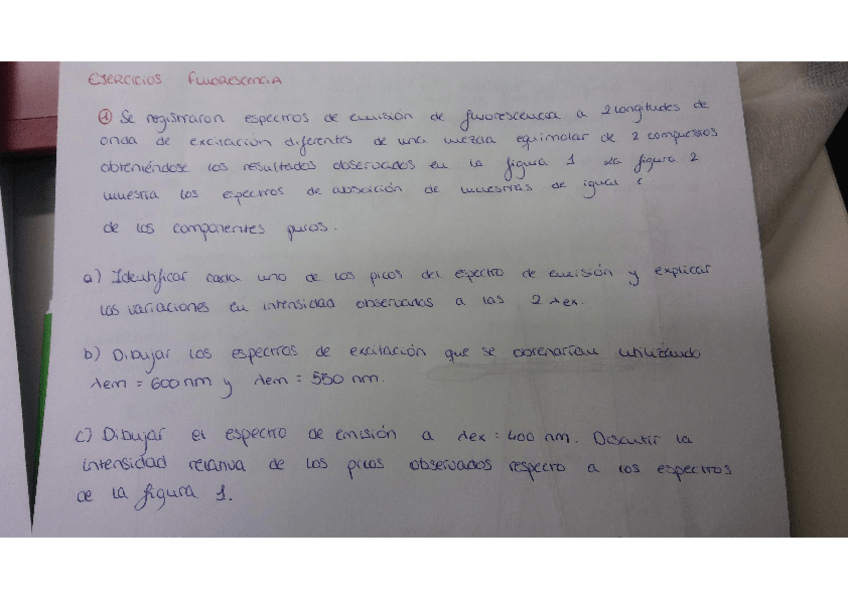 EJERCICIOS FLUORESCENCIA
① Se registraron espectros de emisión de fluorescencia a 2 longitudes de
onda de excitación diferentes de una mezcla equimolar de 2 compuestos
obteniéndose los resultados observados en la figura 1. La figura 2
muestra los espectros de absorción de muestras de igual c
de los componentes puros.
a) Identificar cada uno de los picos del espectro de emisión y explicar
las variaciones en intensidad observadas a las 2 λex.
b) Dibujar los espectros de excitación que se obtendrían utilizando
λem = 600 nm y λem = 550 nm.
c) Dibujar el espectro de emisión a λex = 400 nm. Discutir la
intensidad relativa de los picos observados respecto a los espectros
de la figura 1.